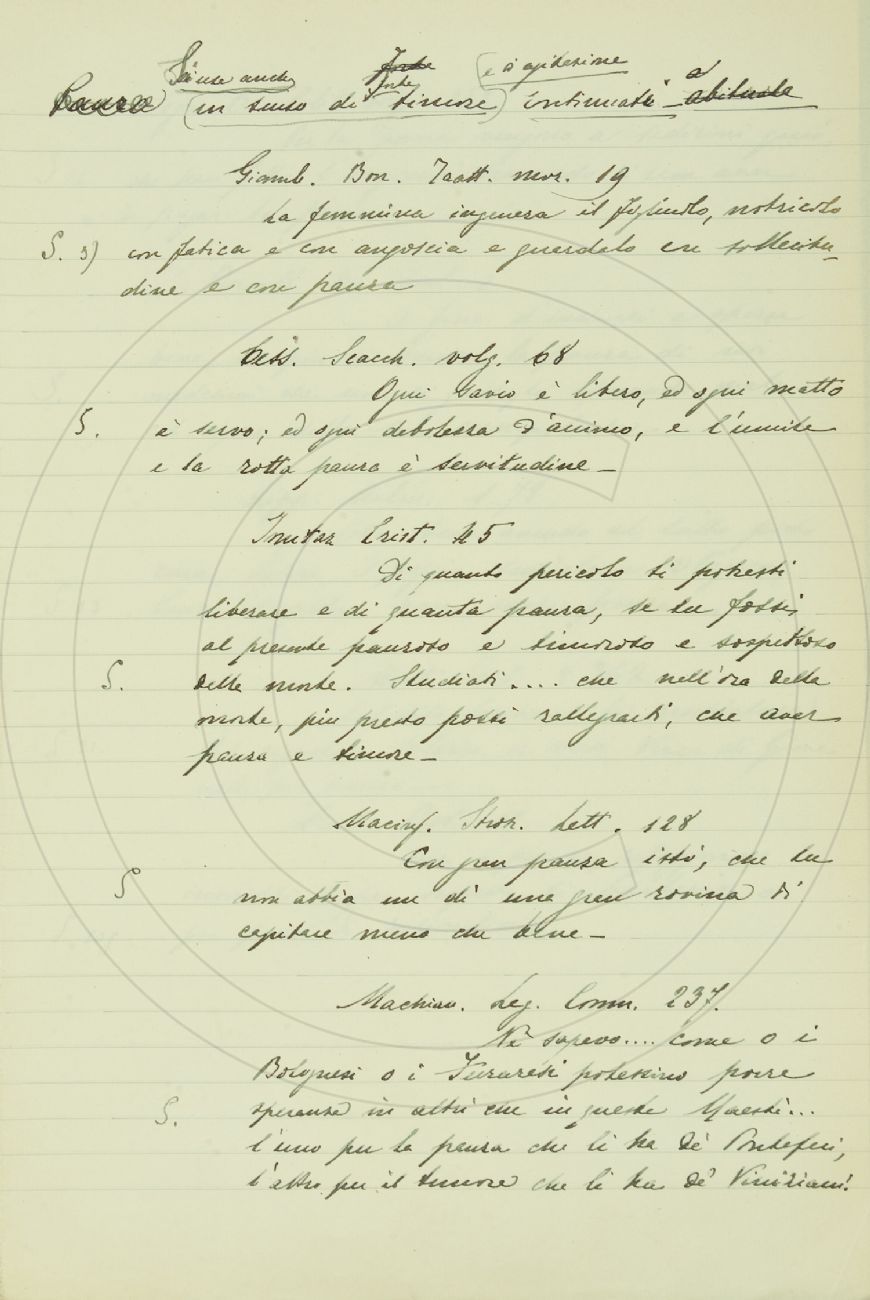 Si use anche forte e à apitesione
Paura (in senso di forte timore) continuato a abituale
Giamb. Bon. Tratt. mor. 19
La femmina ingenera il figliuolo, notricolo
S. 3) con fatica e con angoscia e guardalo con sollecitu-
dine e con paura
Cess. Scacch. volg. 68
Ogni savio è libero, ed ogni matto
S. è servo; ed ogni debolezza d'animo, e l'umile
e la rotta paura è servitudine –
Imitaz Crist. 45
Di quanto pericolo ti potresti
liberare e di quanta paura, se tu fossi
al presente pauroso e timoroso e sospettoso
S. della morte. Studiati .... che nell'ora della
morte, più presto possi rallegrarti, che aver
paura e timore –
Macing. Stroz. Lett. 128
Con gran paura istò, che tu
S non abbia un dì una gran rovina di
capitare meno che bene –
Machiav. Leg. Comm. 237.
Nè sapevo.... come o i
Bolognesi o i Ferraresi potessino porre
S. speranza in altri che in queste Maestà...
l'uno per la paura che li ha de' Pontefici,
l'altro per il timore che li ha de' Viniziani.